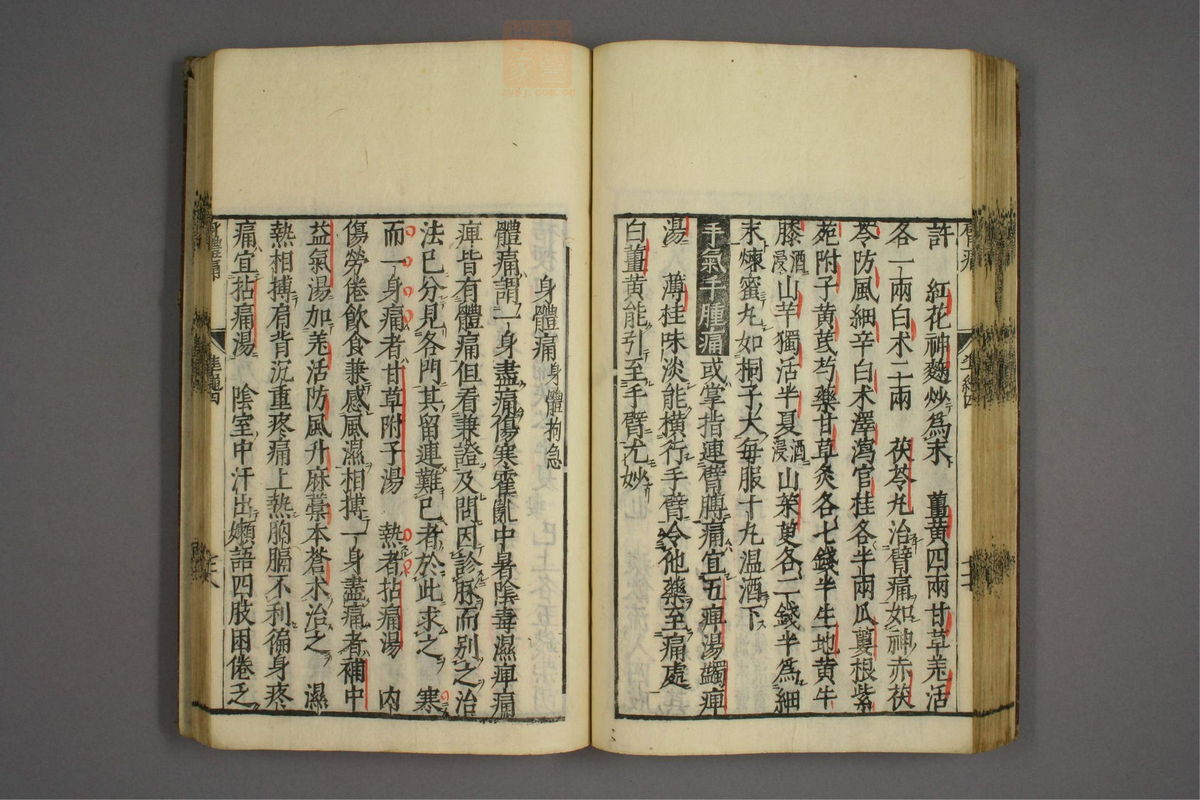 許　紅花神麯炒為末　薑黃四兩甘草羌活
各一兩白术二兩　茯苓丸治臂痛如神赤茯
苓防風細辛白术澤瀉官桂各半兩瓜蔞根紫
菀附子黃芪芍藥甘草炙各七錢半生地黃牛
膝酒浸山芋獨活半夏酒浸山茱萸各二錢半為細
末煉蜜丸如桐子大每服十丸溫酒下
手氣手腫痛或掌指連臂膊痛宜五痺湯蠲痺
湯　薄桂味淡能橫行手臂令他藥至痛處
白薑黃能引至手臂尤妙
身體痛身體拘急
體痛謂一身盡痛傷寒霍亂中暑陰毒濕痺痛
痺皆有體痛但看兼證及問因診脉而別之治
法已分見各門其留連難已者於此求之　寒
而一身痛者甘草附子湯　熱者拈痛湯　內
傷勞倦飲食兼感風濕相搏一身盡痛者補中
益氣湯加羌活防風升麻藁本蒼术治之　濕
熱相搏肩背沉重疼痛上熱胸膈不利徧身疼
痛宜拈痛湯　陰室中汗出嬾語四肢困倦乏